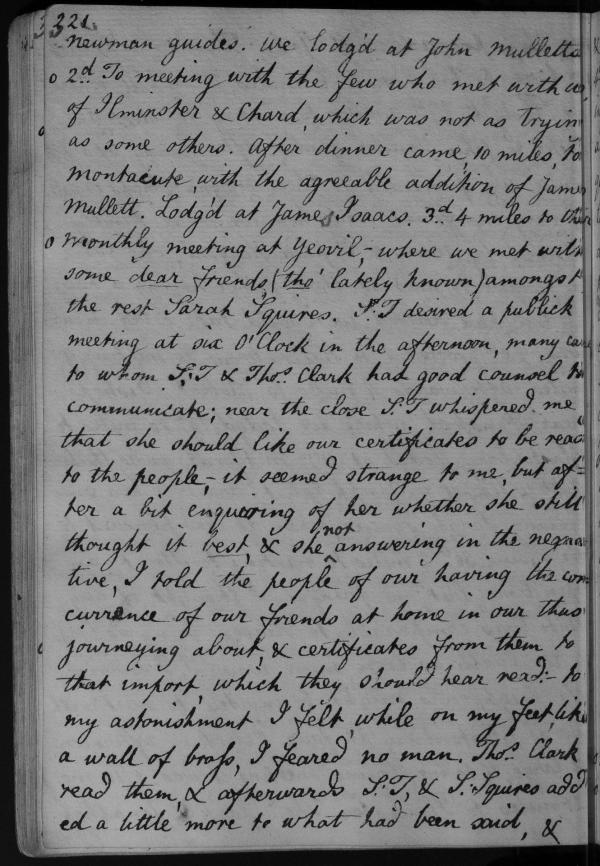 321
newman guides. we lodg'd at John Mulletts
2d To meeting with the few who met with us
of Ilminster & Chard, which was not as Tryin
as some others. After dinner came 10 miles, to
Montacute, with the agreeable addition of Jame
Mullett. Lodg'd at James Isaacs. 3d 4 miles to their
Monthly meeting at Yeovil,- where we met with
some dear friends, (tho' lately known) amongst
the rest Sarah Squires. S:T desired a publick
meeting at six O'Clock in the afternoon, many came
to whom S:T & Thos. Clark had good counsel to
communicate; near the close S:T whispered me
that she should like our certificates to be read
to the people,- it seemed strange to me, but af=
ter a bit enquiring of her whether she still
thought it best, & she not answering in the nega
tive, I told the people of our having the con
currence of our friends at home in our thus
journeying about, & certificates from them to
that import, which they should hear read:- to
my astonishment I felt, while on my feet, like
a wall of brass, I feared no man. Thos. Clark
read them, & afterwards S:T, & S:Squires add
ed a little more to what had been said, &